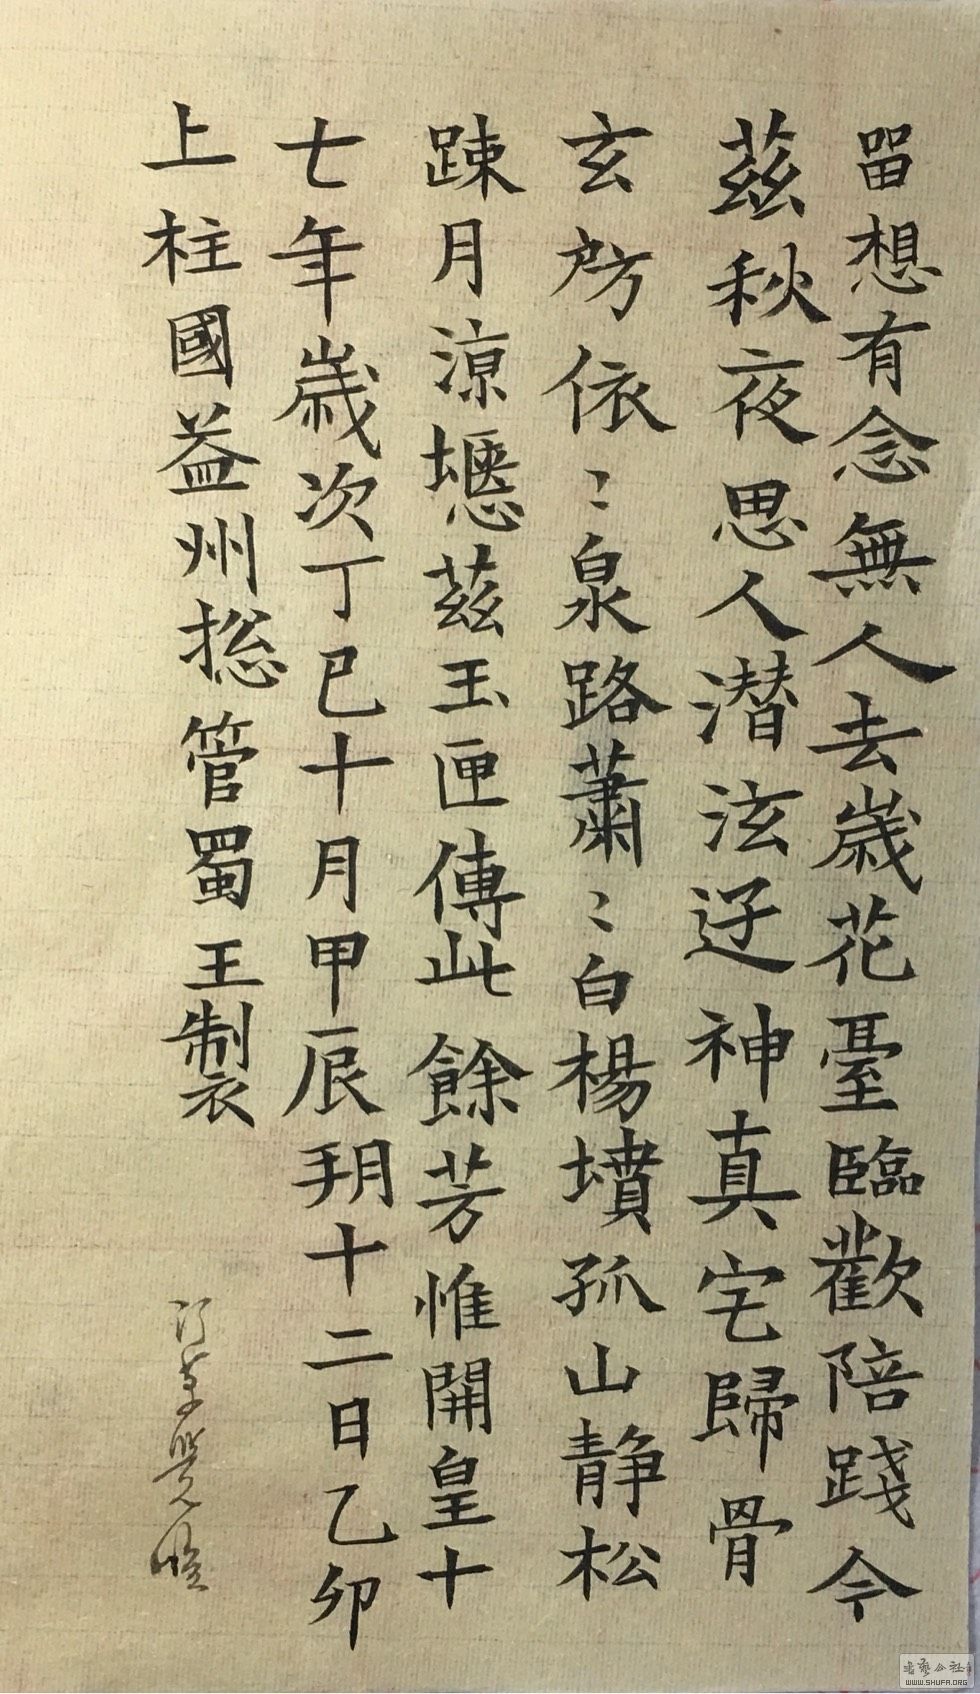 留想有念無人去歲花臺臨歡陪踐今
茲秋夜思人潛泫迓神真宅歸骨
玄房依〻泉路蕭〻白楊墳孤山靜松
踈月涼壥茲玉匣傳此餘芳惟開皇十
七年歲次丁巳十月甲辰朔十二日乙卯
上柱國益州揔管蜀王製
書藝公社
WWW.SHUFA.ORG